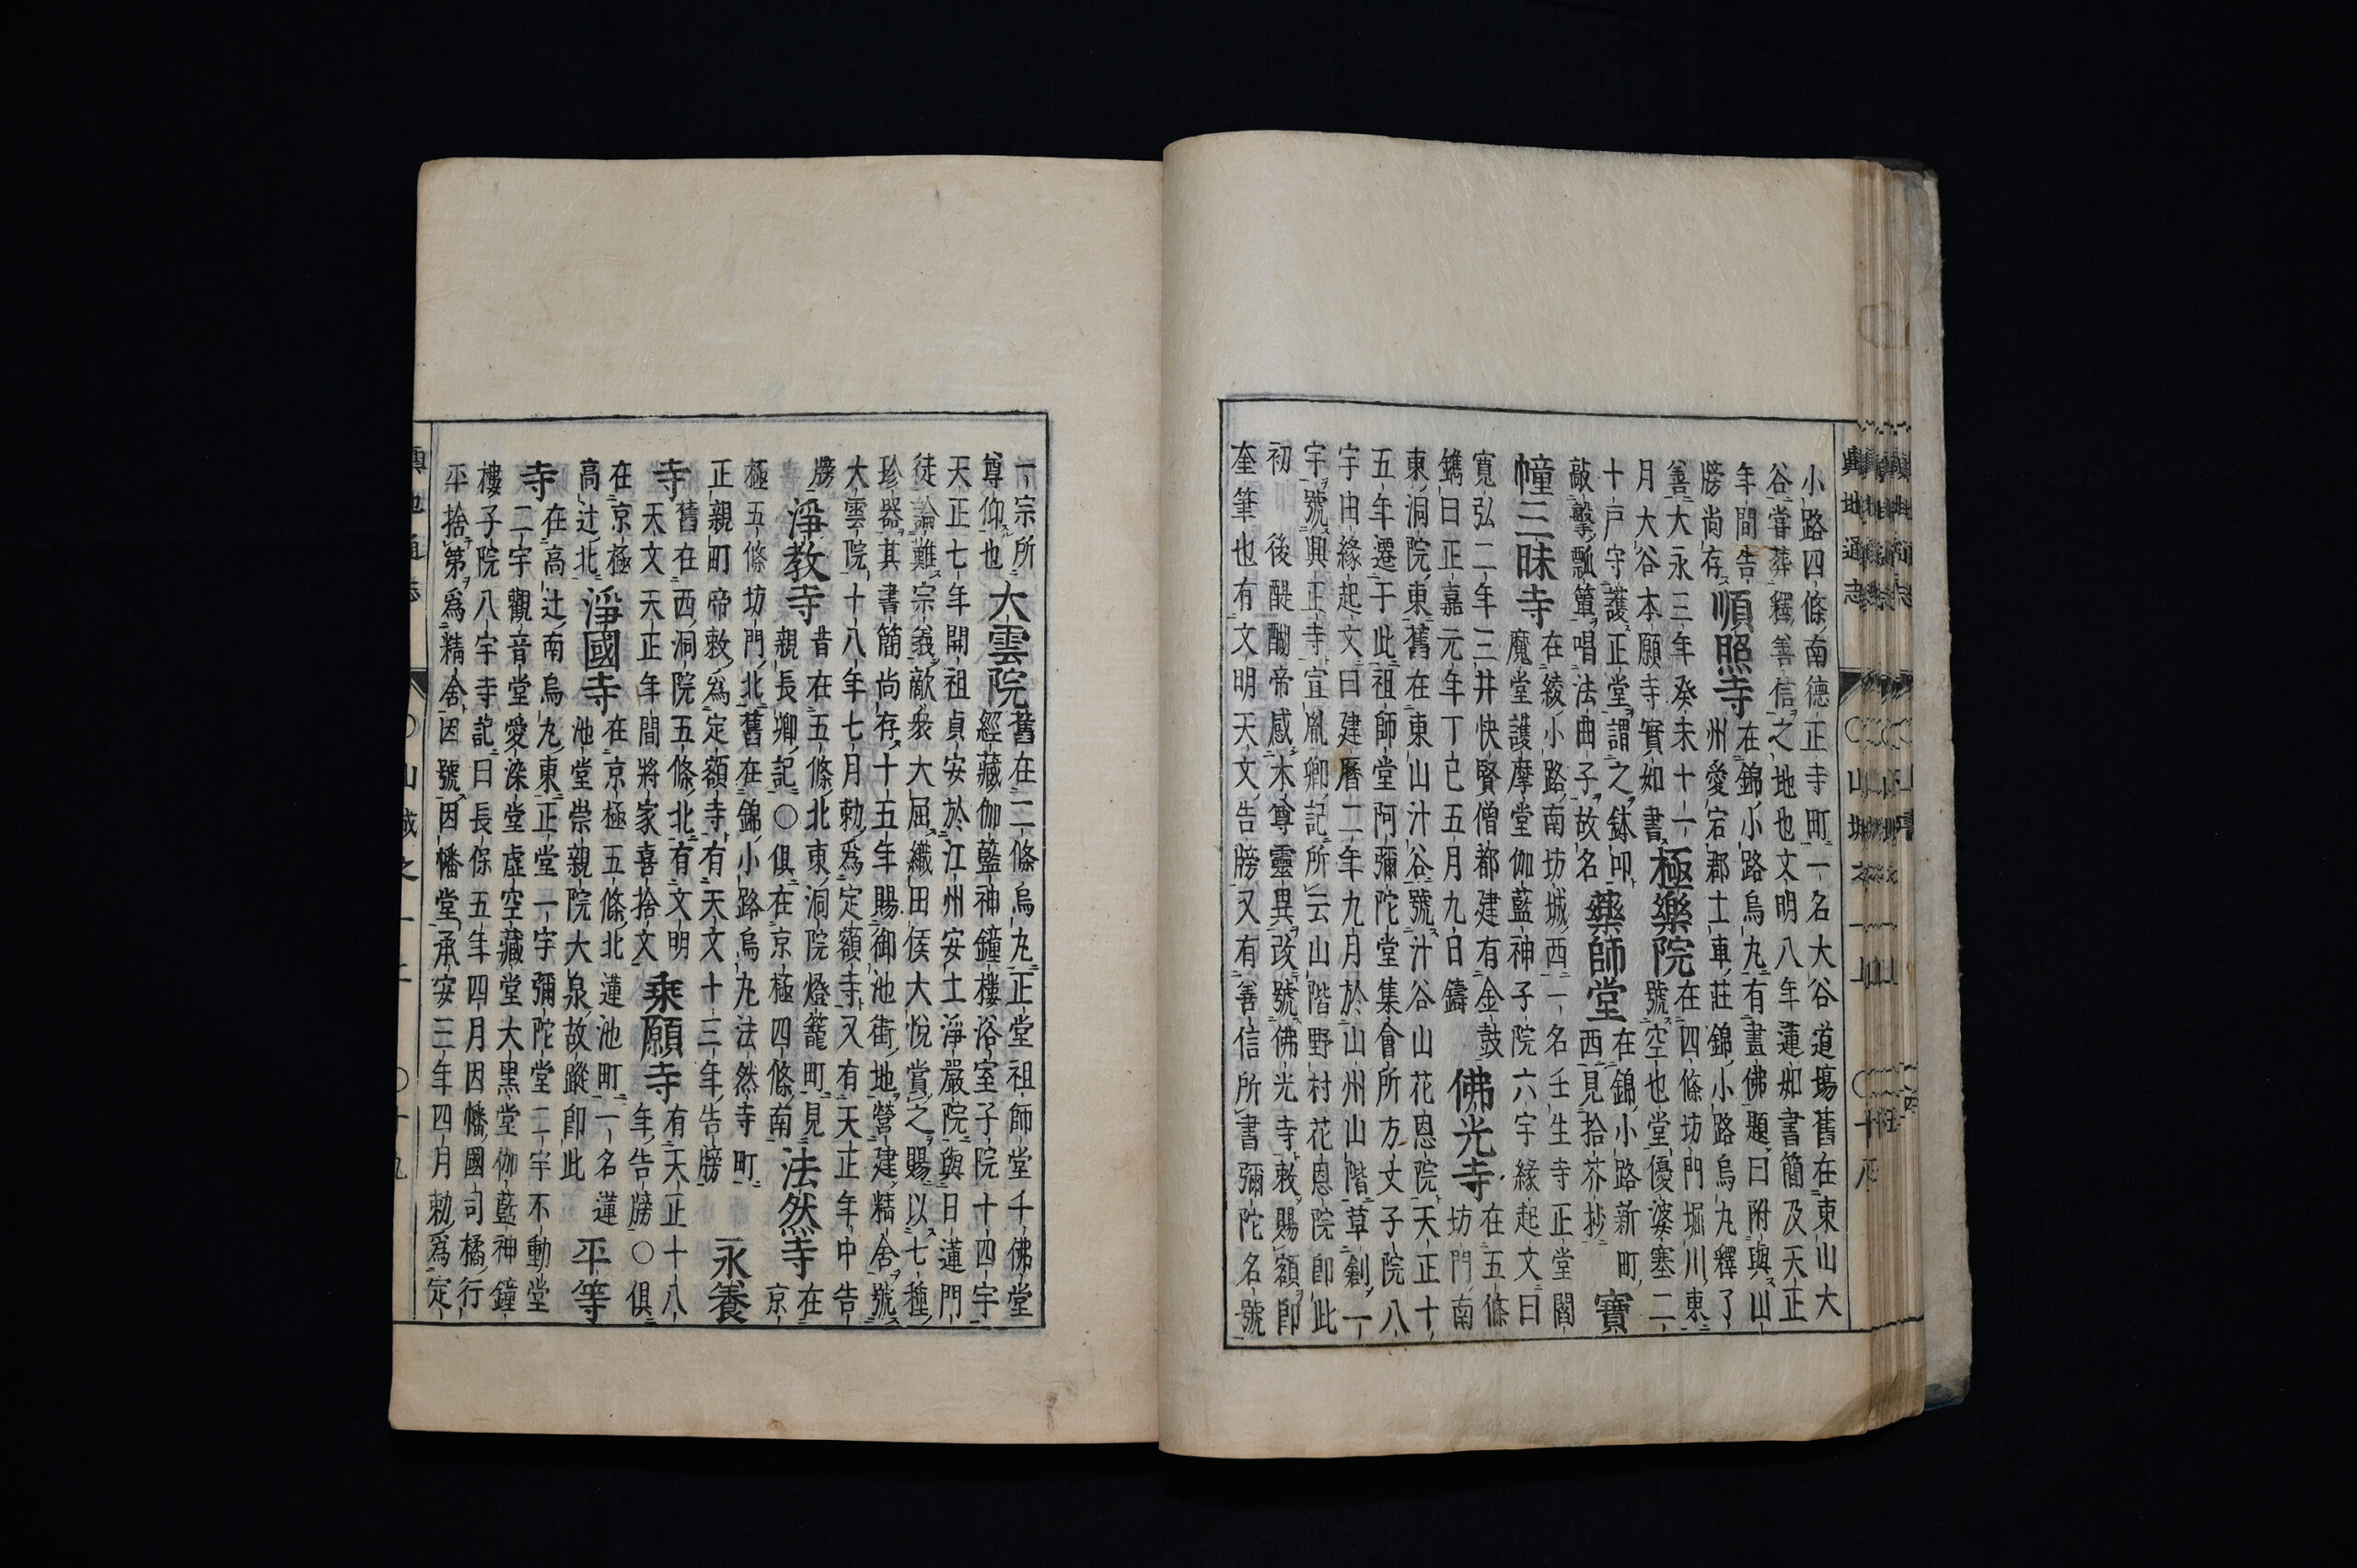 輿地通志
山城之一上
十八
小路四條南德正寺町一名大谷道場舊在東山大
谷嘗葬釋善信之地也文明八年蓮如書簡及天正
年間告
牓尚存
順照寺
在錦小路烏丸有畫佛題曰附與山
州愛宕郡士車莊錦小路烏丸釋了
善大永三年癸未十一
月大谷本願寺實如書
極樂院
在四條坊門堀川東
號空也堂優婆塞二
十戶守護正堂謂之鉢叩
敲擊瓢簞唱法曲子故名
藥師堂
在錦小路新町
西見拾芥抄
寶
幢三昧寺
在綾小路南坊城西一名壬生寺正堂閻
魔堂護摩堂伽藍神子院六宇緣起文曰
寬弘二年三井快賢僧都建有金鼓
鐫曰正嘉元年丁巳五月九日鑄
佛光寺
在五條
坊門南
東洞院東舊在東山汁谷號汁谷山花恩院天正十
五年遷于此祖師堂阿彌陀堂集會所方丈子院八
宇由緣起文曰建曆二年九月於山州山階草創一
宇號興正寺宣胤卿記所云山階野村花恩院卽此
初 後醍醐帝感木尊靈異改號佛光寺敕賜額卽
奎筆也有文明天文告牓又有善信所書彌陀名號
一宗所
尊仰也
大雲院
舊在二條烏丸正堂祖師堂千佛堂
經藏伽藍神鐘樓浴室子院十四宇
天正七年開祖貞安於江州安土淨嚴院與日蓮門
徒論難宗義敵衆大屈織田侯大悅賞之賜以七種
珍器其書簡尚存十五年賜御池街地營建精舍號
大雲院十八年七月勅爲定額寺又有天正年中告
牓
淨教寺
昔在五條北東洞院燈籠町見
親長卿記○俱在京極四條南
法然寺
在
京
極五條坊門北舊在錦小路烏丸法然寺町
正親町帝敕爲定額寺有天文十三年告牓
永養
寺
舊在西洞院五條北有文明
天文天正年間將家喜捨文
乘願寺
有天正十八
年告牓○俱
在京極
高辻北
淨國寺
在京極五條北蓮池町一名蓮
池堂崇親院大泉故蹤卽此
平等
寺
在高辻南烏丸東正堂一宇彌陀堂二宇不動堂
二宇觀音堂愛染堂虛空藏堂大黑堂伽藍神鐘
樓子院八宇寺記曰長保五年四月因幡國司橘行
平捨第爲精舍因號因幡堂承安三年四月勅爲定